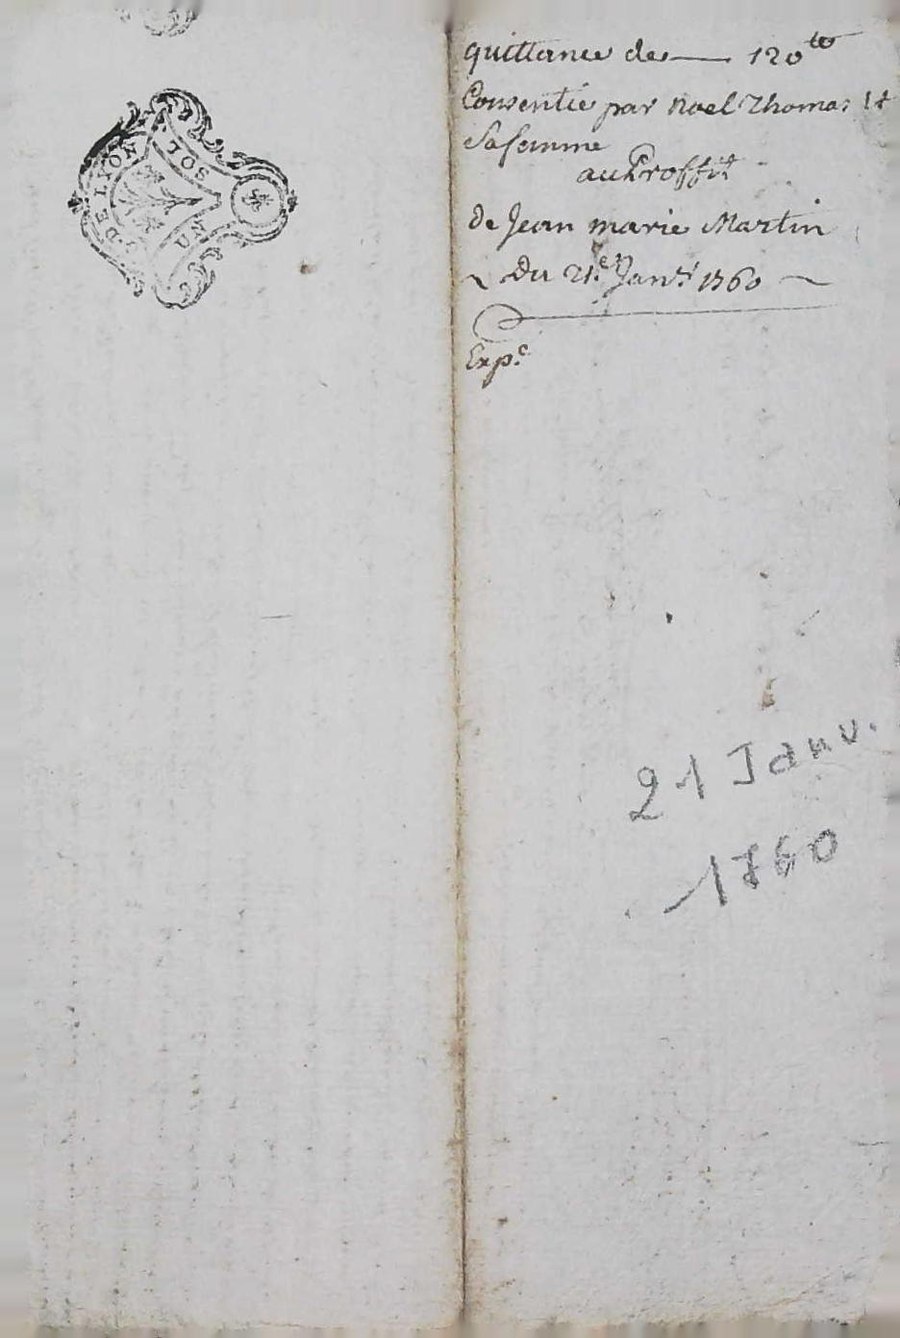 G. DE LYON
UN SOL
quittance de — 120 ₶
Consentie par Noel Thomas Et
Sa femme
au Proffit
de Jean marie Martin
~ Du 21.e Janv.r 1760 ~
Exp.e
21 Janv.
1760